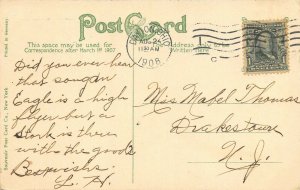 Post Card
This space may be used for
Correspondence after March 1st 1907
1908
Printed in Germany
Souvenir Post Card Co., New York
Did you ever hear
that song an
Eagle is a high
flyer but a
stork is there
with the goods
Best wishes
L. H.
Miss Mabel Thomas
Drakestown
N. J.